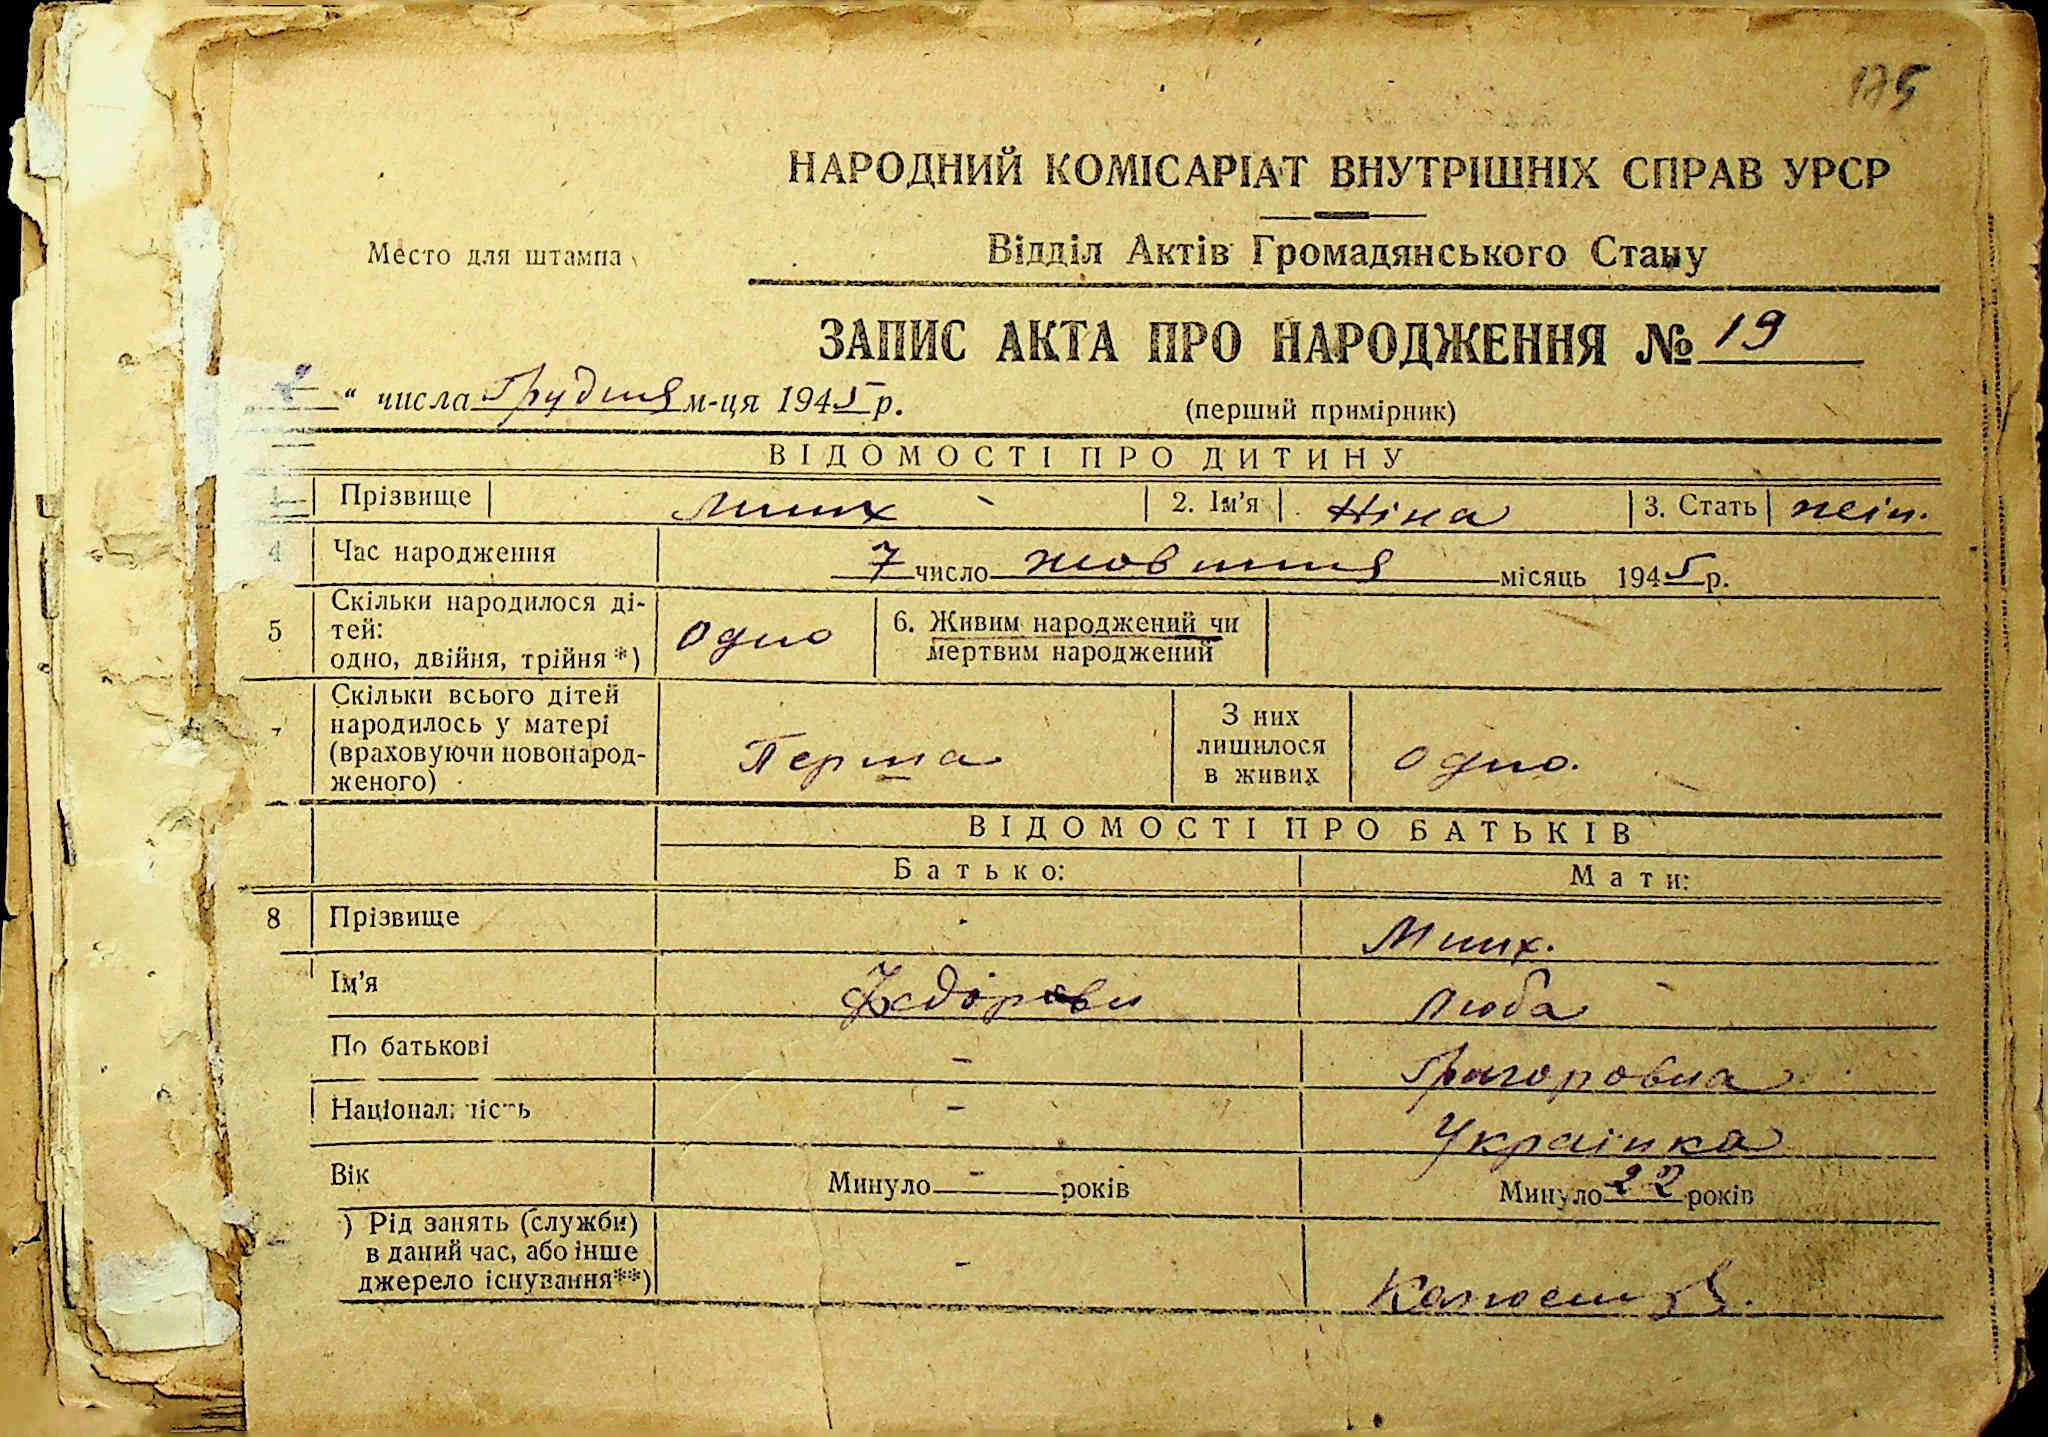 175
НАРОДНИЙ КОМІСАРІАТ ВНУТРІШНІХ СПРАВ УРСР
Место для штампа
Відділ Актів Громадянського Стану
ЗАПИС АКТА ПРО НАРОДЖЕННЯ № 19
2 " числа Грудня м-ця 1945 р.
(перший примірник)
ВІДОМОСТІ ПРО ДИТИНУ
1 Прізвище Мних 2. Ім'я Ніна 3. Стать жін.
4 Час народження 7 число жовтня місяць 1945 р.
5 Скільки народилося ді-
тей:
одно, двійня, трійня *)
Одно
6. Живим народжений чи
мертвим народжений
7 Скільки всього дітей
народилось у матері
(враховуючи новонарод-
женого)
Перша
З них
лишилося
в живих
одно.
ВІДОМОСТІ ПРО БАТЬКІВ
Батько: Мати:
8 Прізвище - Мних.
Ім'я Люба
По батькові - Григоровна
Національність - Українка
Вік Минуло - років Минуло 22 років
) Рід занять (служби)
в даний час, або інше
джерело існування**)
-